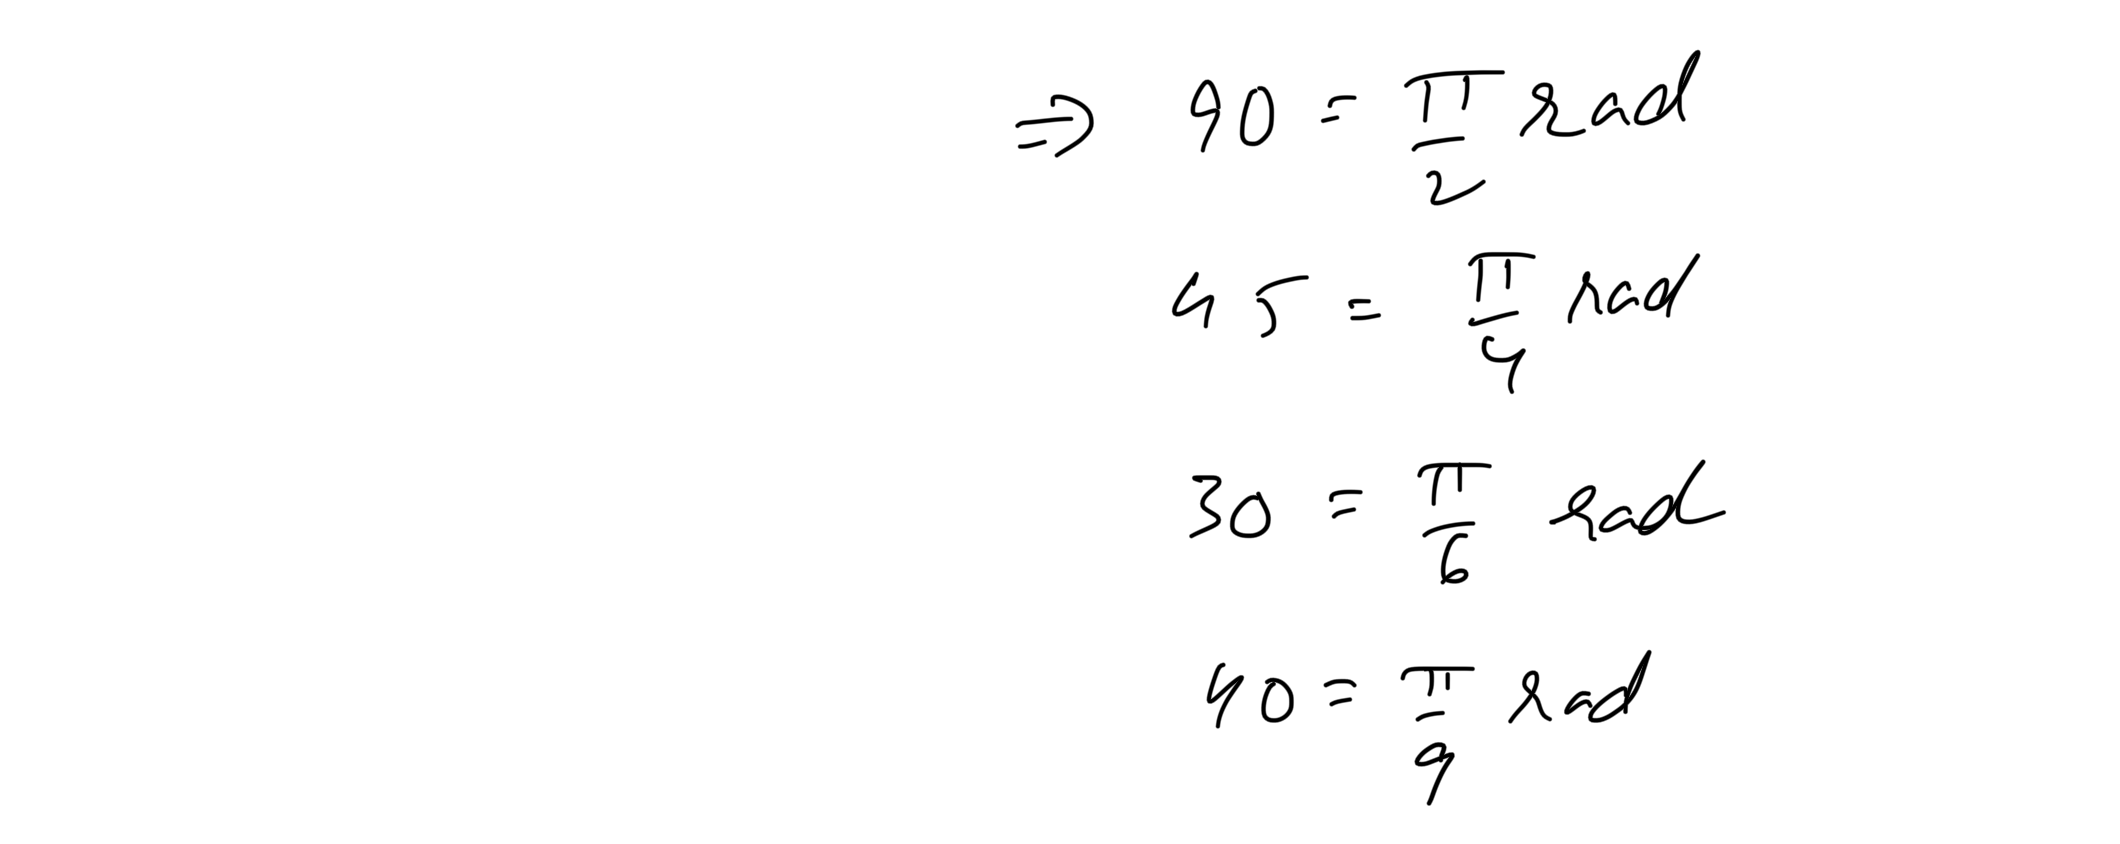 ⇒ 90 = π/2 rad
45 = π/4 rad
30 = π/6 rad
40 = π/9 rad